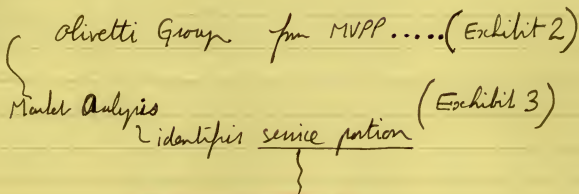 Olivetti Group from MVPP.....(Exhibit 2)
Market Analysis (Exhibit 3)
identifies service portion